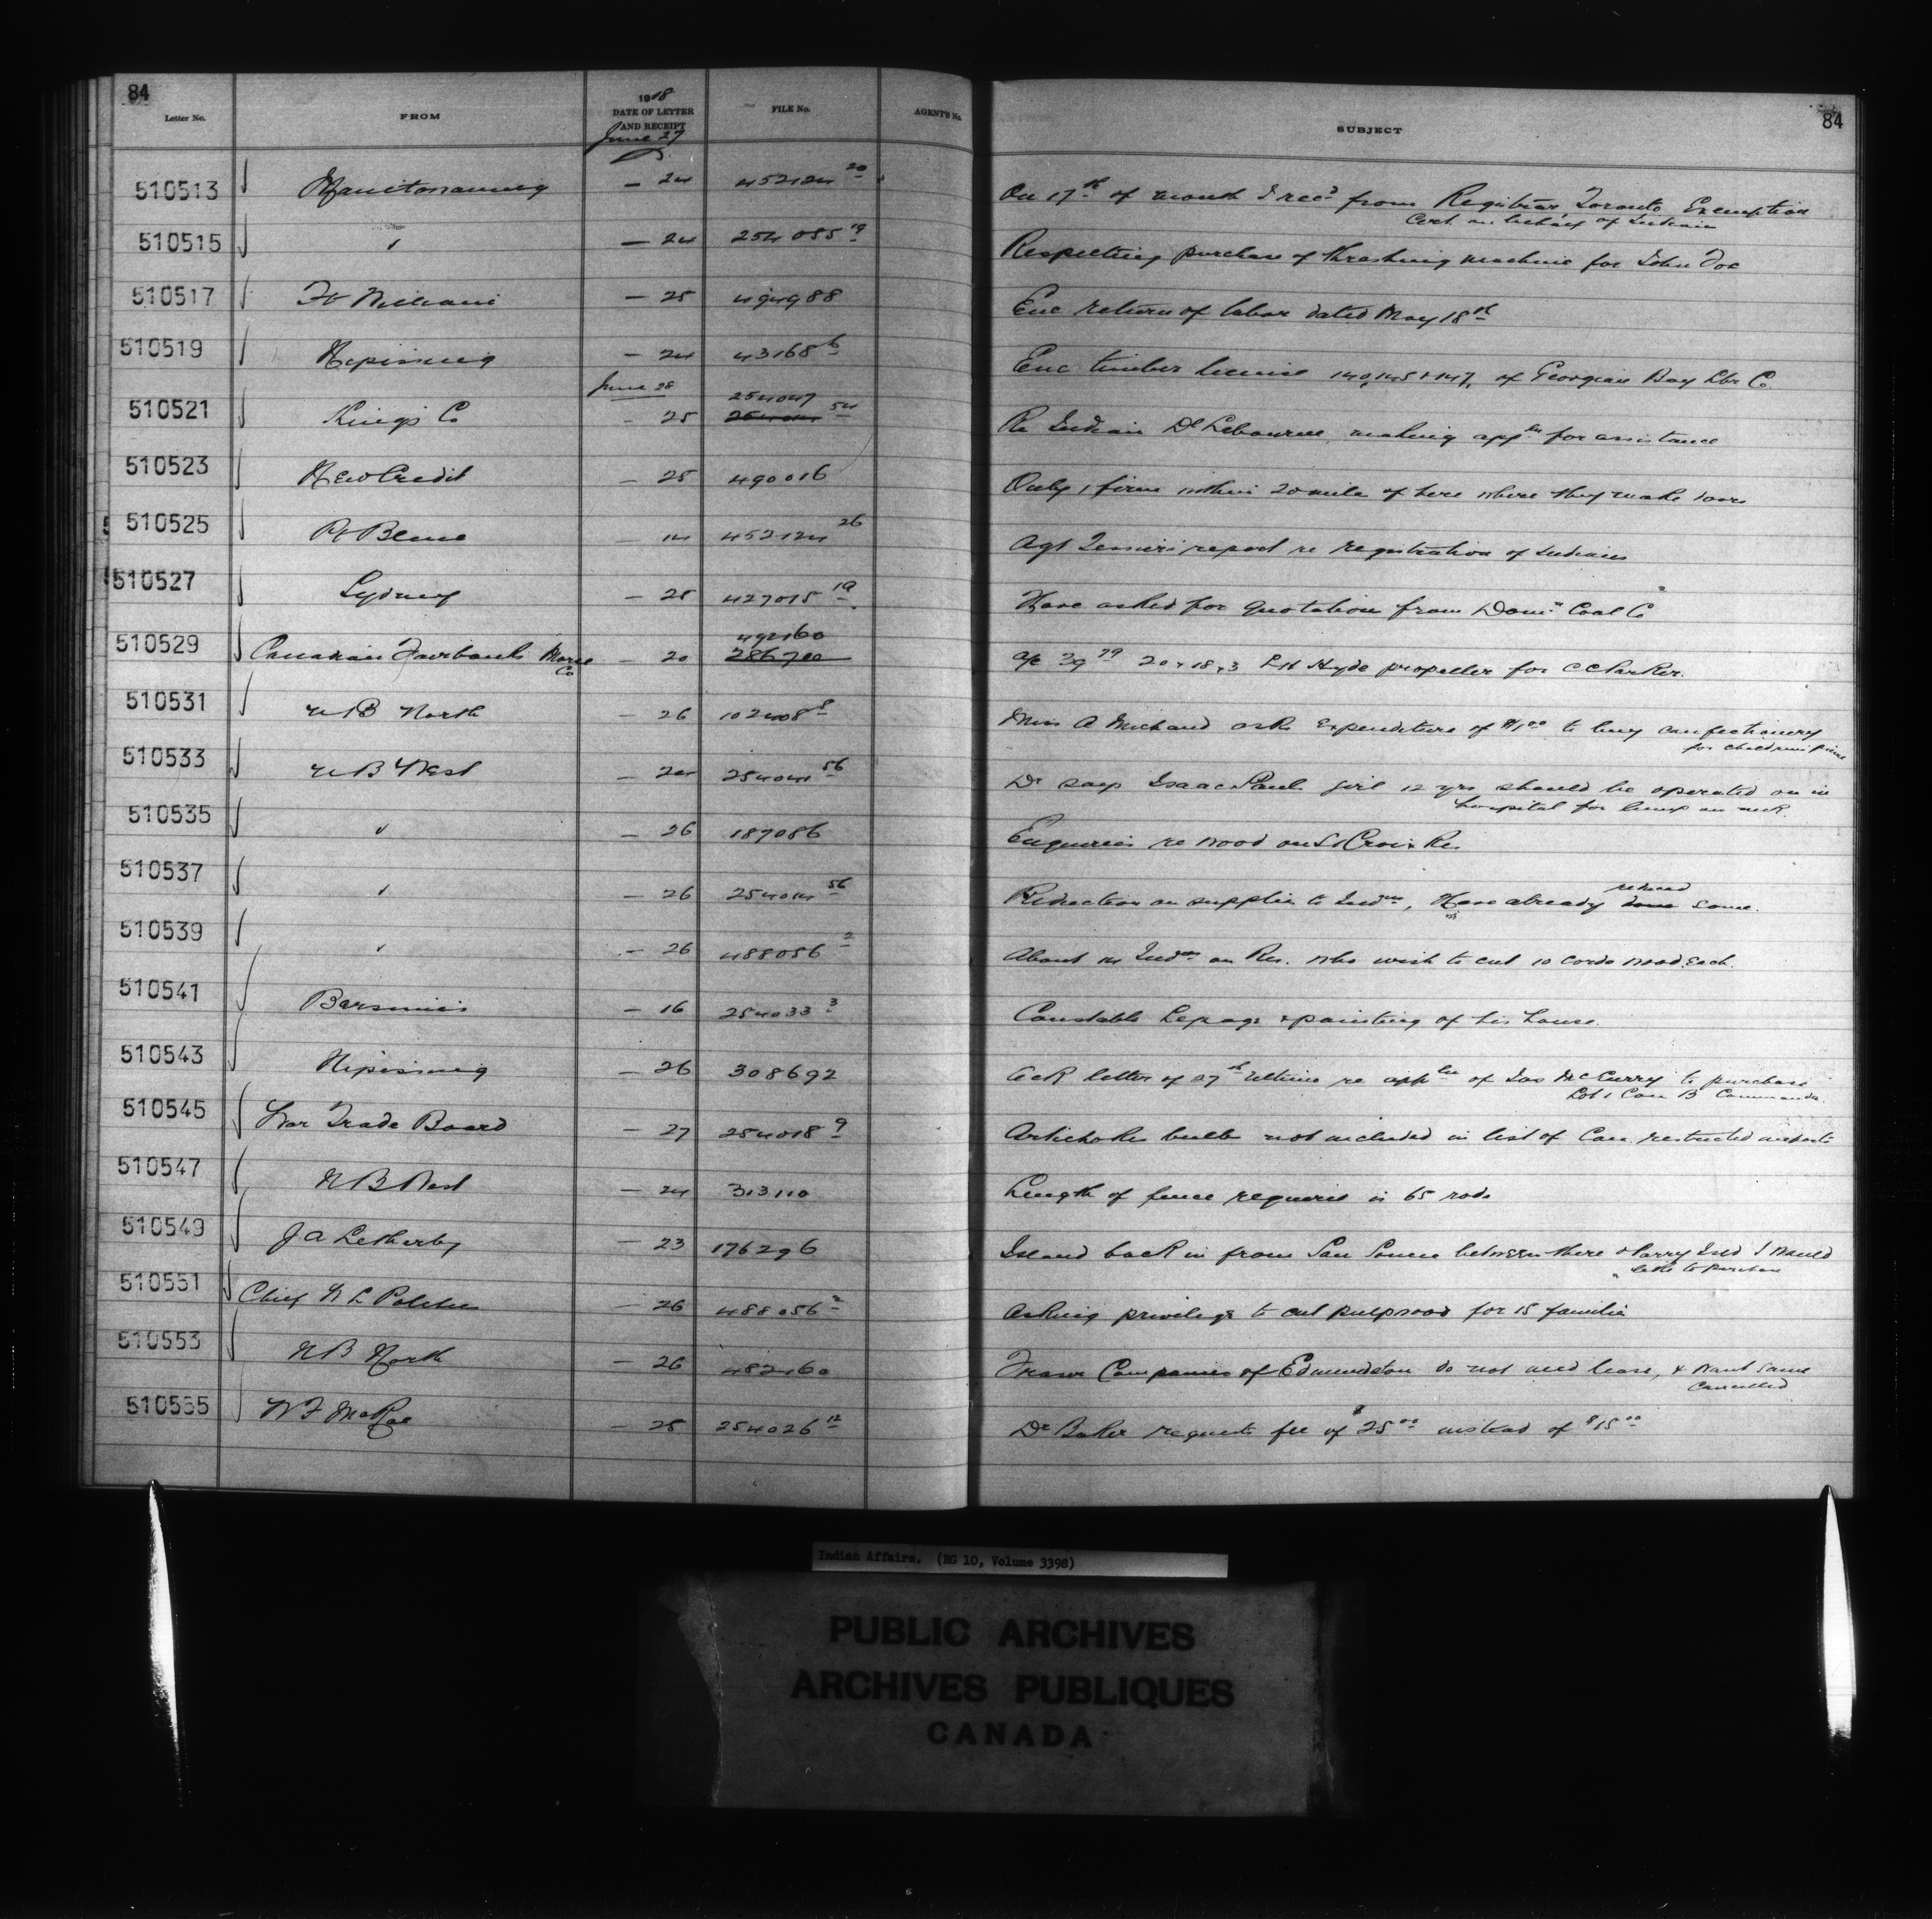 84
84
1918
Letter No. FROM DATE OF LETTER AND RECEIPT FILE No. AGENT'S No. SUBJECT
June 27
510513 Manitowaning — 24 452124 20 On 17th of month I recd from Registrar Toronto Exemption
Cert on behalf of Indian
510515 " — 24 254055 19 Respecting purchase of thrashing machine for John Doe
510517 Ft William — 25 494988 Enc return of labor dated May 18th
510519 Nipissing — 24 43168 6 Enc timber license 140, 145 & 147, of Georgian Bay Lbr Co.
June 28
254047
510521 Kings Co — 25 54 Re Indian making appln for assistance
510523 New Credit — 25 490016 Only 1 firm within 20 mile of here where they make
510525 Pt Bleue — 14 452124 26 Agt report re registration of Indians
510527 Sydney — 25 427015 19 Have asked for quotation from Domn Coal Co
492160
510529 Canadian Fairbanks Morse — 20 286700 a/c 39 79 20 x 18 x 3 LH Hyde propeller for C C Parker.
Co
510531 N B North — 26 102408 8 Miss A Michaud asks expenditure of $1 00 to buy confectionery
for childrens picnic
510533 N B West — 24 254041 56 Dr says Isaac Paul girl 12 yrs should be operated on in
hospital for lump on neck.
510535 " — 26 187086 Enquiries re wood on St Croix Res
reduced
510537 " — 26 254014 56 Reduction on supplies to Indns, Have already done some.
510539 " — 26 488056 2 About 14 Indns on Res. who wish to cut 10 cords wood each.
510541 Bersimis — 16 254033 3 Constable Lepage & painting of his house.
510543 Nipissing — 26 308692 Ack letter of 27th ultimo re appln of Jas McCurry to purchase
Lot 1 Con B Commanda.
510545 War Trade Board — 27 254018 9 Artichoke bulbs not included in list of Can. restricted imports
510547 N B West — 24 313110 Length of fence required is 65 rods
510549 J A Letherby — 23 176296 Island back in from San Souci between there & Parry Isld I would
like to purchase
510551 Chief — 26 488056 2 Asking privilege to cut pulpwood for 15 families
510553 N B North — 26 482160 Fraser Companies of Edmundston do not need lease, & want same
cancelled
510555 W F McRae — 25 254026 12 Dr Baker requests fee of $25 00 instead of $15 00
Indian Affairs. (RG 10, Volume 3398)
PUBLIC ARCHIVES
ARCHIVES PUBLIQUES
CANADA